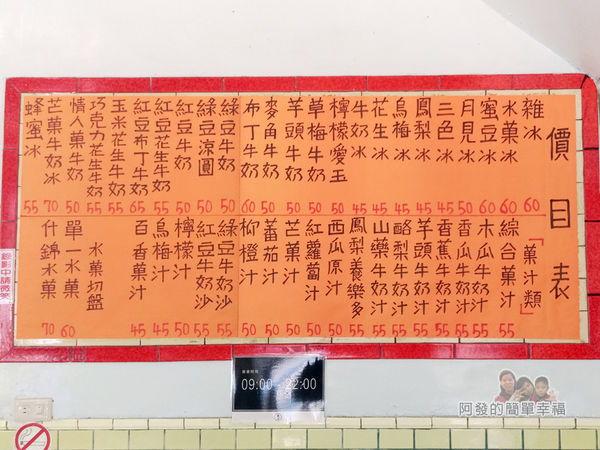 價目表
雜冰 60
水菓冰 60
蜜豆冰 60
月見冰 50
三色冰 50
鳳梨冰 50
烏梅冰 50
花生冰 50
牛奶冰 45
檸檬愛玉 50
草梅牛奶 50
芋頭牛奶 50
麥角牛奶 50
布丁牛奶 60
綠豆牛奶 50
綠豆涼圓 50
紅豆牛奶 50
紅豆花生牛奶 55
紅豆布丁牛奶 65
玉米花生牛奶 55
巧克力花生牛奶 55
情人菓牛奶 50
芒菓牛奶冰 70
蜂蜜冰 55
「菓汁類」
綜合菓汁 55
木瓜牛奶汁 55
香瓜牛奶汁 55
香蕉牛奶汁 55
芋頭牛奶汁 55
酪梨牛奶汁 55
山藥牛奶汁 55
鳳梨養樂多 55
西瓜原汁 50
紅蘿蔔汁 50
芒菓汁 50
蕃茄汁 50
柳橙汁 50
綠豆牛奶沙 55
紅豆牛奶沙 55
檸檬汁 50
烏梅汁 45
百香菓汁 45
水菓切盤
單一水菓 60
什錦水菓 70
錄影中請微笑
營業時間
09:00 - 22:00
阿發的簡單幸福